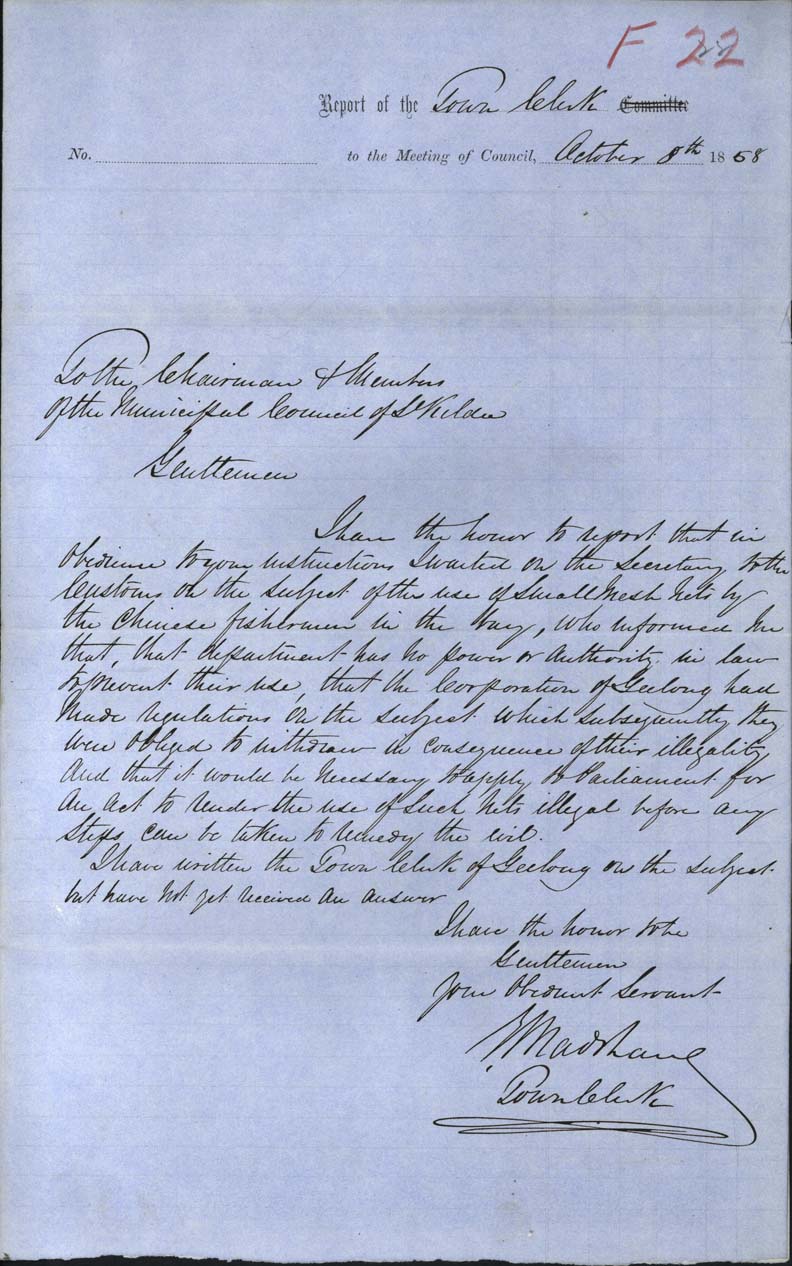 F 22
Report of the Town Clerk Committee
No. to the Meeting of Council, October 8th 1858
To the Chairman & Members
Of the Municipal Council of St Kilda
Gentlemen
I have the honor to report that in
Obedience to your instructions I waited on the Secretary to the
Customs on the subject of the use of Small Mesh Nets by
the Chinese fishermen in the bay, who informed me
that, that department has no power or authority in law
to prevent their use, that the Corporation of Geelong had
Made regulations on the subject which subsequently they
were obliged to withdraw in consequence of their illegality
And that it would be necessary to apply to Parliament for
An Act to render the use of such Nets illegal before any
steps can be taken to remedy the evil.
I have written the Town Clerk of Geelong on the subject
but have not yet received an answer
I have the honor to be
Gentlemen
Your Obedient Servant
Town Clerk